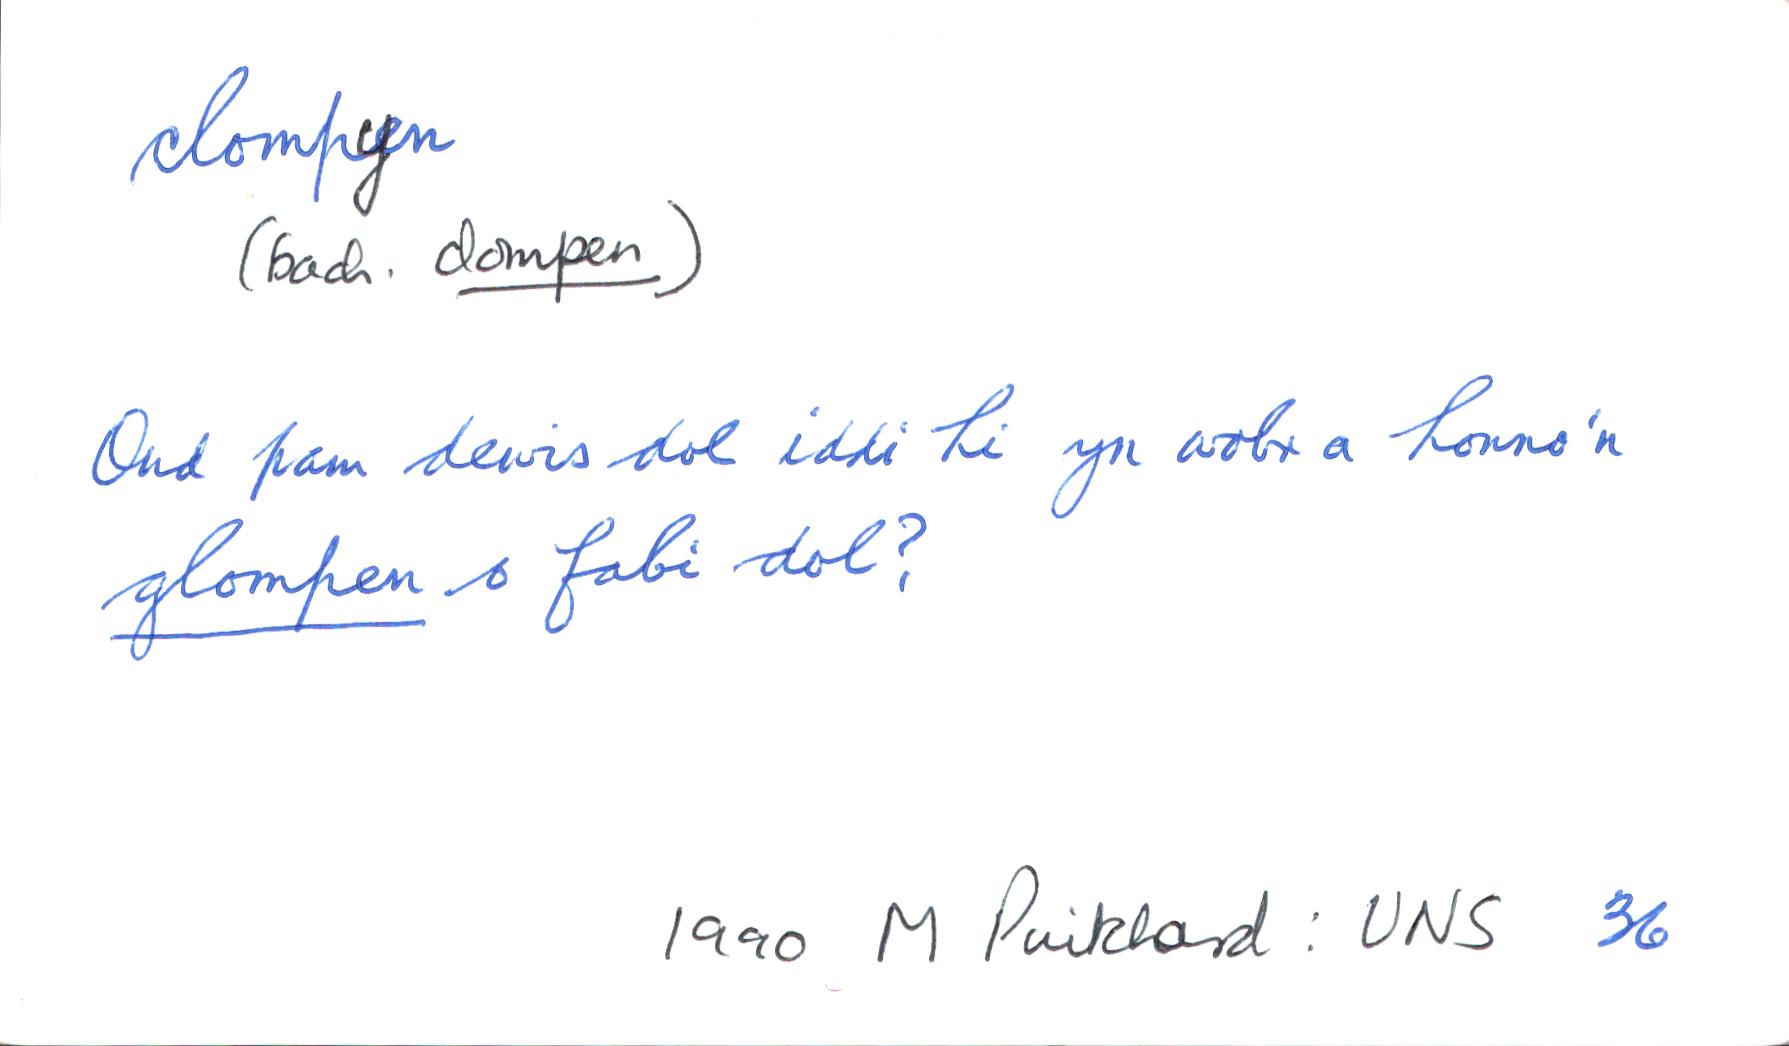 clompyn
(bach. clompen)
Ond pam dewis dol iddi hi yn wobr a honno'n
glompen o fabi dol?
1990 M Pritchard: UNS 36